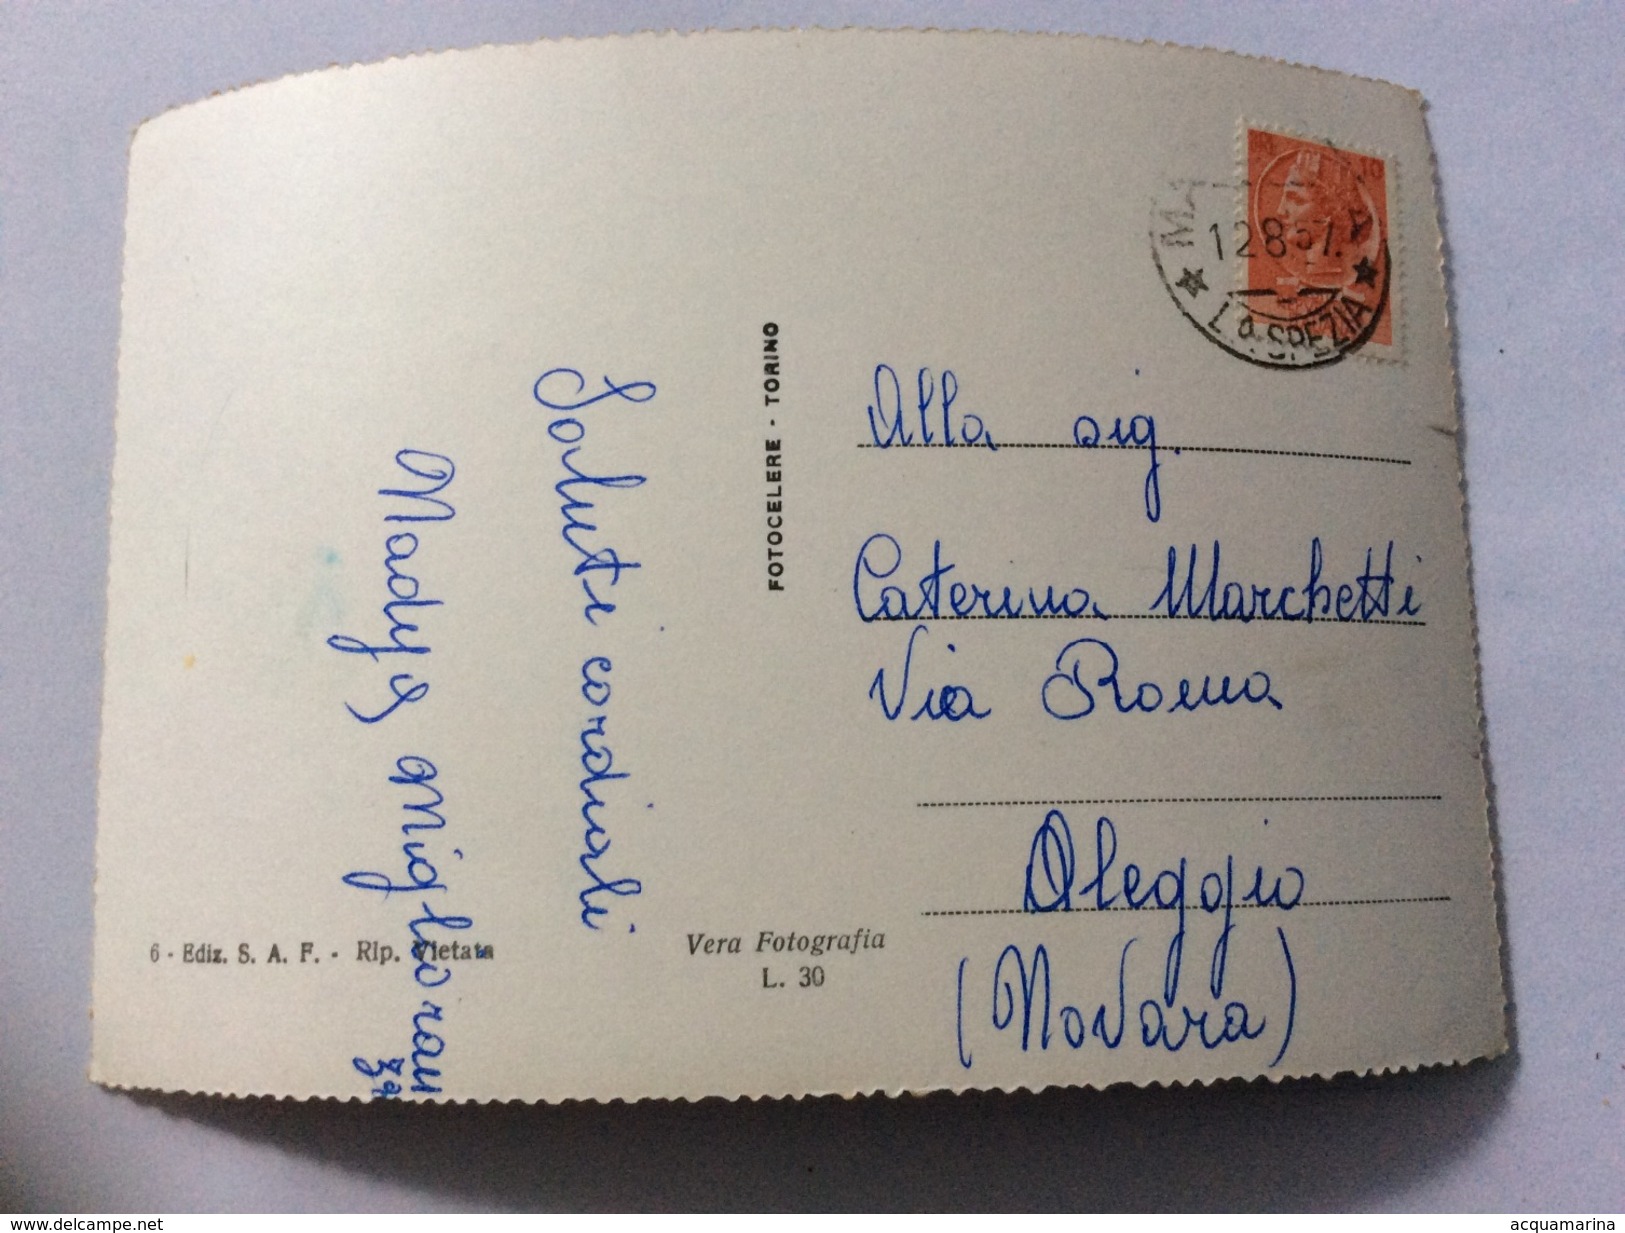 12.8.57.
LA SPEZIA
FOTOCELERE - TORINO
Saluti cordiali
Madys Miglioran
za
Alla sig.
Caterina Marchetti
Via Roma
Oleggio
(Novara)
6 - Ediz. S. A. F. - Rip. Vietata
Vera Fotografia
L. 30
www.delcampe.net
acquamarina